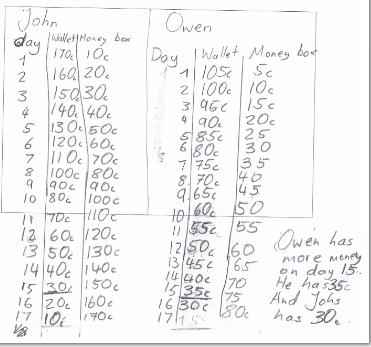 John
day Wallet Money box
1 170c 10c
2 160c 20c
3 150c 30c
4 140c 40c
5 130c 50c
6 120c 60c
7 110c 70c
8 100c 80c
9 90c 90c
10 80c 100c
11 70c 110c
12 60c 120c
13 50c 130c
14 40c 140c
15 30c 150c
16 20c 160c
17 10c 170c
Owen
Day Wallet Money box
1 105c 5c
2 100c 10c
3 95c 15c
4 90c 20c
5 85c 25
6 80c 30
7 75c 35
8. 70c 40
9. 65c 45
10 60c 50
11 55c 55
12 50c 60
13 45c 65
14 40c 70
15 35c 75
16 30c 80c
17
Owen has
more money
on day 15.
He has 35c
And Johs
has 30c.